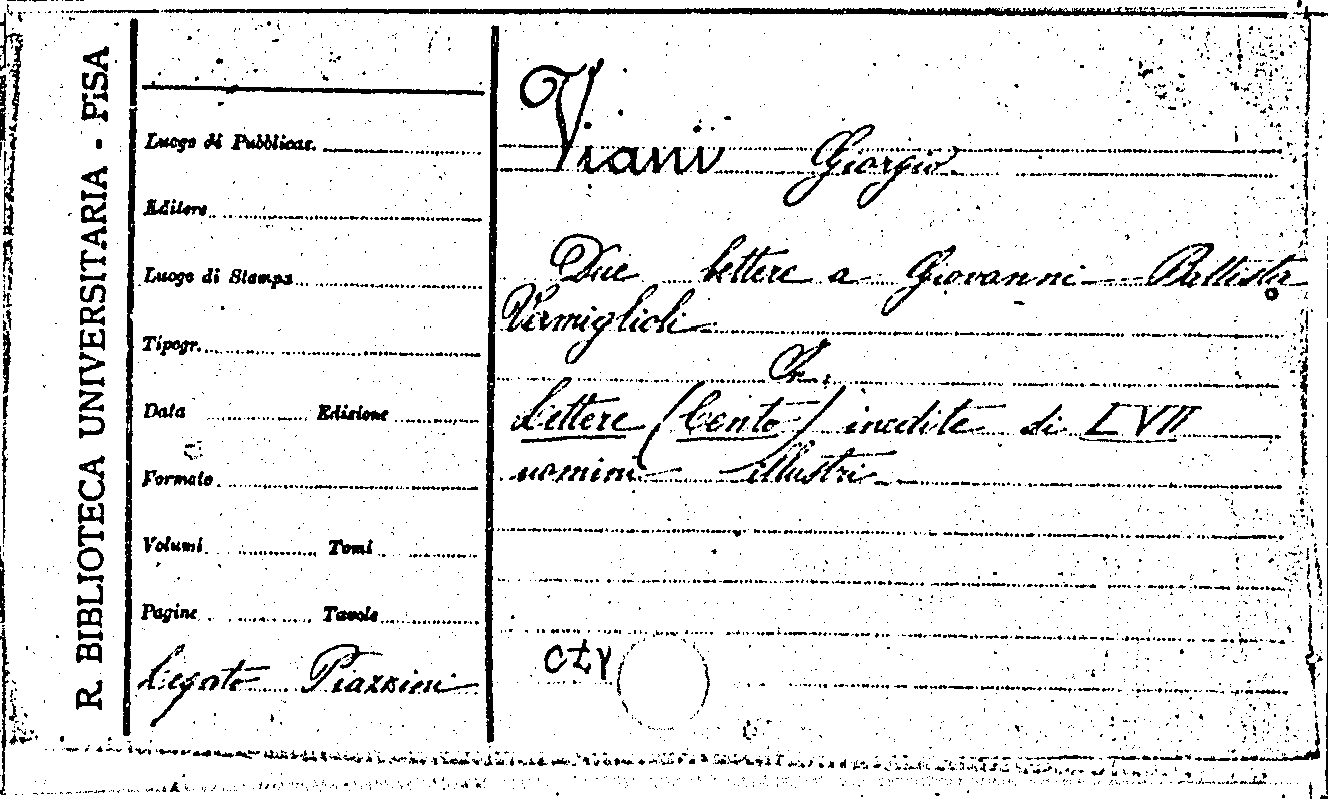 R. BIBLIOTECA UNIVERSITARIA - PISA
Luogo di Pubblicaz.
Editore
Luogo di Stampa
Tipogr.
Data Edizione
Formato
Volumi Tomi
Pagine Tavole
Legato Piazzini
Viani Giorgio
Due lettere a Giovanni Battista
Vermiglioli
In:
Lettere (Cento) inedite di LVII
uomini illustri